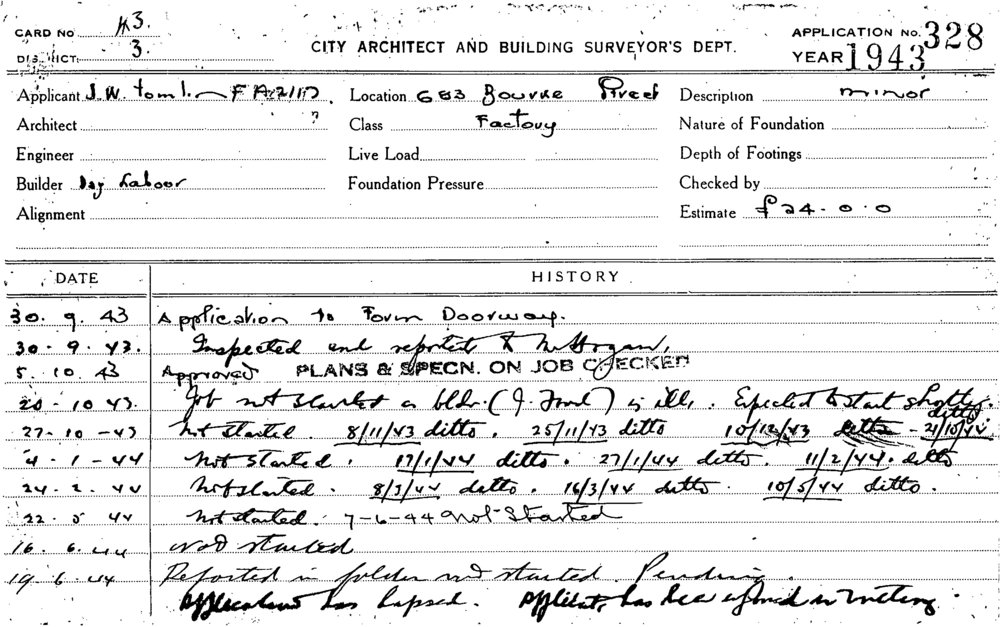 CARD No 3.
DISTRICT 3.
CITY ARCHITECT AND BUILDING SURVEYOR'S DEPT.
APPLICATION No. 328
YEAR 1943
Applicant J. W. Tomlin Location 683 Bourke Street Description minor
Architect Class Factory Nature of Foundation
Engineer Live Load Depth of Footings
Builder Day Labour Foundation Pressure Checked by
Alignment Estimate £24.0.0
DATE HISTORY
30. 9. 43 Application to Form Doorway.
30-9-43. Inspected and reported to Mr Hogan.
5. 10. 43 Approved PLANS & SPECN. ON JOB CHECKED
20-10 43. Job not started as bldr. (J. ) is ill. Expected to start shortly.
27-10-43 Not started. 8/11/43 ditto. 25/11/43 ditto 10/12/43 ditto - 21/10/44 ditto
4-1-44 Not started. 17/1/44 ditto. 27/1/44 ditto. 11/2/44. ditto
24-2.44 Not started. 8/3/44 ditto. 16/3/44 ditto. 10/5/44 ditto.
22.5 44 Not started. 7-6-44 Not Started
16. 6.44 Not started
19.6.44 Reported in folder not started. Pending.
Application has lapsed. Applicant has been informed in writing.